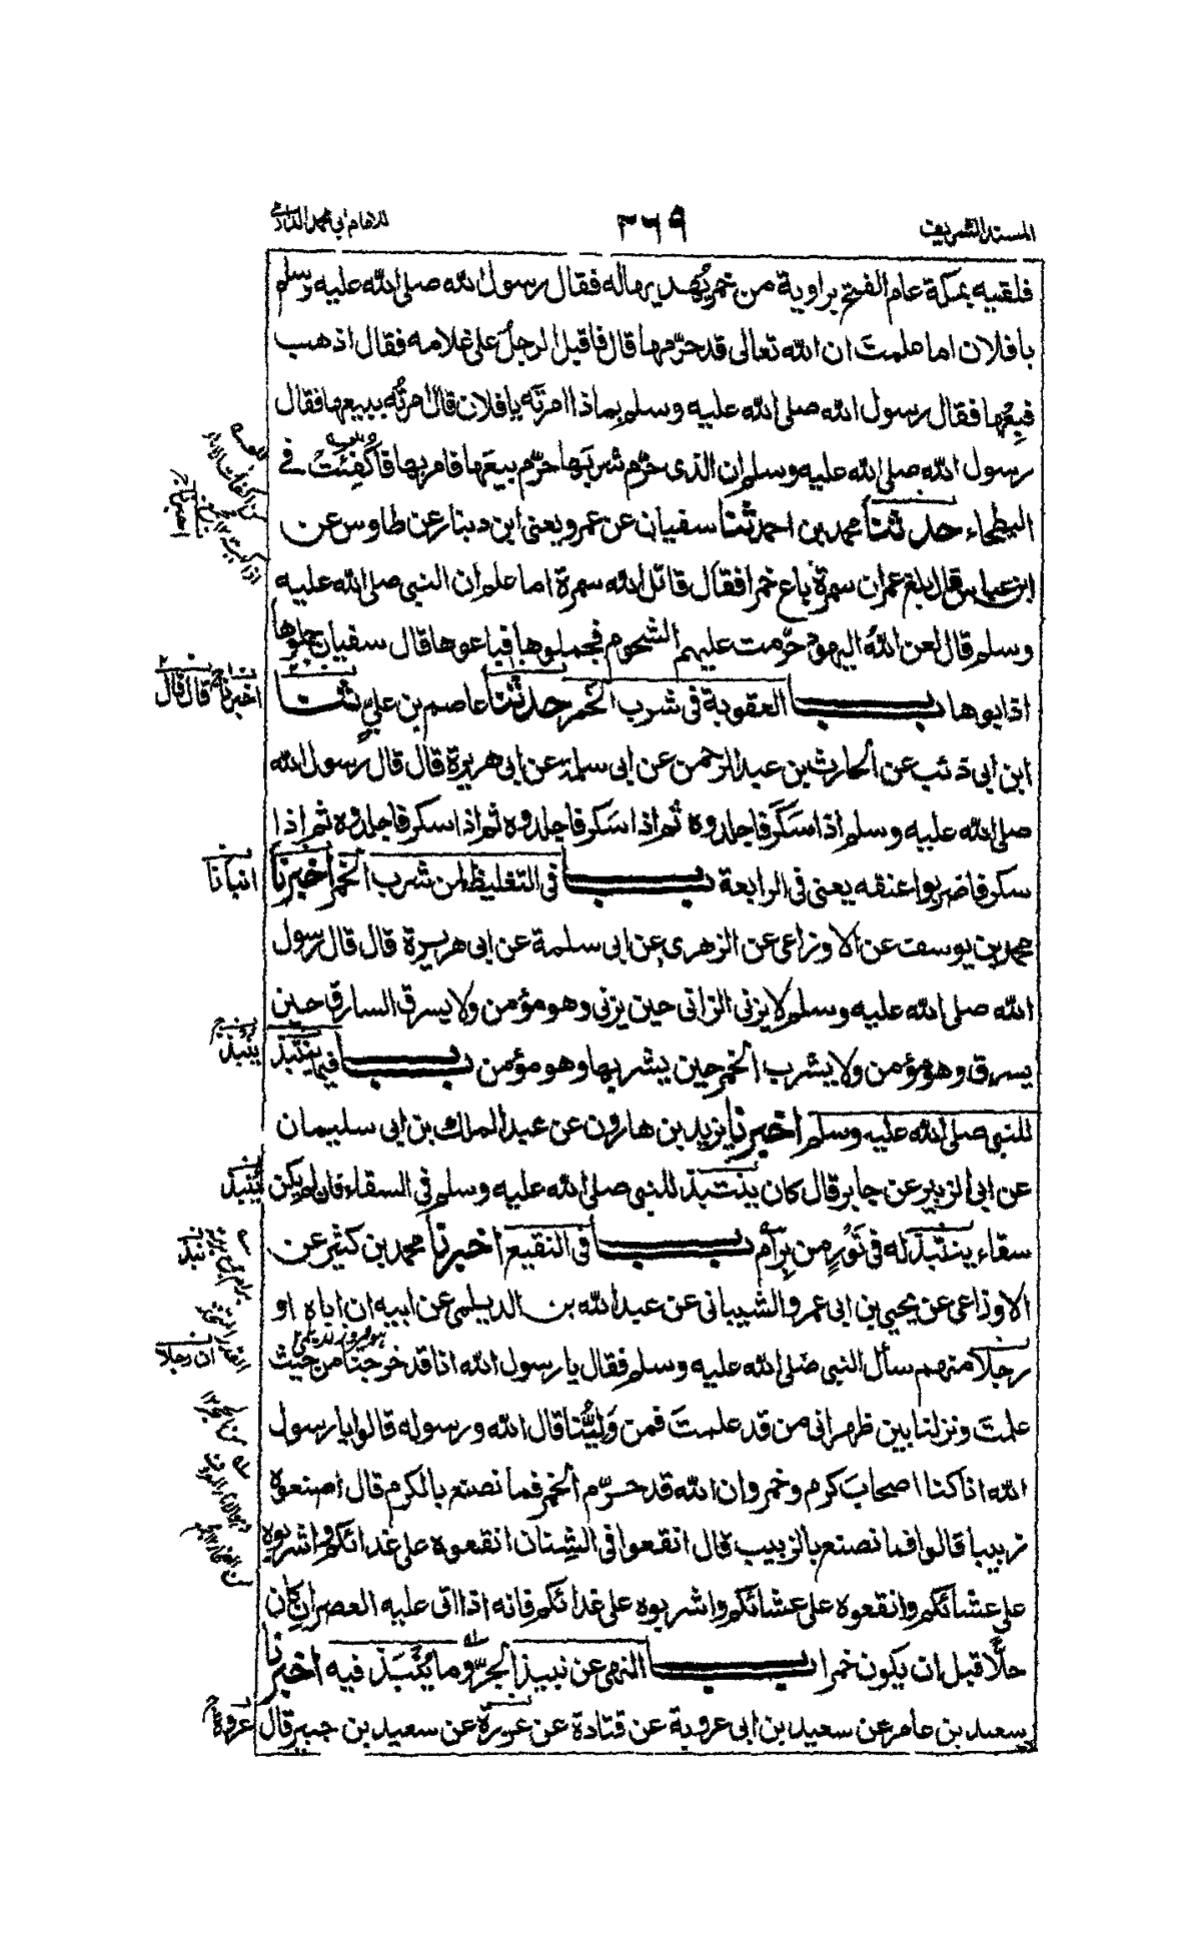 المسند الشريف
٣٦٩
للامام ابي محمد الدارمي
فلقيه بمكة عام الفتح براوية من خمر يهديها له فقال رسول الله صلى الله عليه وسلم
يا فلان اما علمت ان الله تعالى قد حرّمها قال فاقبل الرجل على غلامه فقال اذهب
فبِعْها فقال رسول الله صلى الله عليه وسلم بماذا امرتَه يا فلان قال امرتُه ببيعها فقال
رسول الله صلى الله عليه وسلم ان الذى حرّم شربَها حرّم بيعَها فامر بها فاُكْفِئَتْ فى
البطحاء حدثنا محمد بن احمد ثنا سفيان عن عمرو يعنى ابن دينار عن طاوس عن
ابن عباس قال بلغ عمر ان سمرة باع خمرا فقال قاتل الله سمرة اما علم ان النبى صلى الله عليه
وسلم قال لعن اللهُ اليهود حرّمت عليهم الشحوم فجملوها فباعوها قال سفيان جملوها
اذابوها باب العقوبة فى شرب الخمر حدثنا عاصم بن علىٍّ ثنا
ابن ابى ذئب عن الحارث بن عبد الرحمن عن ابى سلمة عن ابى هريرة قال قال رسول الله
صلى الله عليه وسلم اذا سَكَرَ فاجلدوه ثم اذا سَكر فاجلدوه ثم اذا سكر فاجلدوه ثم اذا
سكر فاضربوا عنقه يعنى فى الرابعة باب فى التغليظ لمن شرب الخمر اخبرنا
محمد بن يوسف عن الاوزاعى عن الزهرى عن ابى سلمة عن ابى هريرة قال قال رسول
الله صلى الله عليه وسلم لا يزنى الزانى حين يزنى وهو مؤمن ولا يسرق السارق حين
يسرق وهو مؤمن ولا يشرب الخمر حين يشربها وهو مؤمن باب فيما ينتبذ
للنبى صلى الله عليه وسلم اخبرنا يزيد بن هارون عن عبد الملك بن ابى سليمان
عن ابى الزبير عن جابر قال كان ينتبذ للنبى صلى الله عليه وسلم فى السقاء فان لم يكن
سقاء ينتبذ له فى تَوْرٍ من بِرام باب فى النقيع اخبرنا محمد بن كثير عن
الاوزاعى عن يحيى بن ابى عمرو الشيبانى عن عبد الله بن الديلمى عن ابيه ان اباه او
رجلا منهم سأل النبى صلى الله عليه وسلم فقال يا رسول الله انا قد خرجنا من حيث
علمتَ ونزلنا بين ظهرانى من قد علمتَ فمن وَلِيُّنا قال الله ورسوله قالوا يا رسول
الله انا كنا اصحابَ كرم وخمر وان الله قد حرّم الخمر فما نصنع بالكرم قال اصنعوه
زبيبا قالوا فما نصنع بالزبيب قال انقعوا فى الشِنان انقعوه على غدائكم واشربوه
على عشائكم وانقعوه على عشائكم واشربوه على غدائكم فانه اذا اتى عليه العصران كان
حلّا قبل ان يكون خمرا باب النهى عن نبيذ الجرّ وما يُنْبَذ فيه اخبرنا
سعيد بن عامر عن سعيد بن ابى عروبة عن قتادة عن عزرة عن سعيد بن جبير قال
اخبرنا
قال قال
انبأنا
ينبذ
نبذ
ان رجلا
عروة